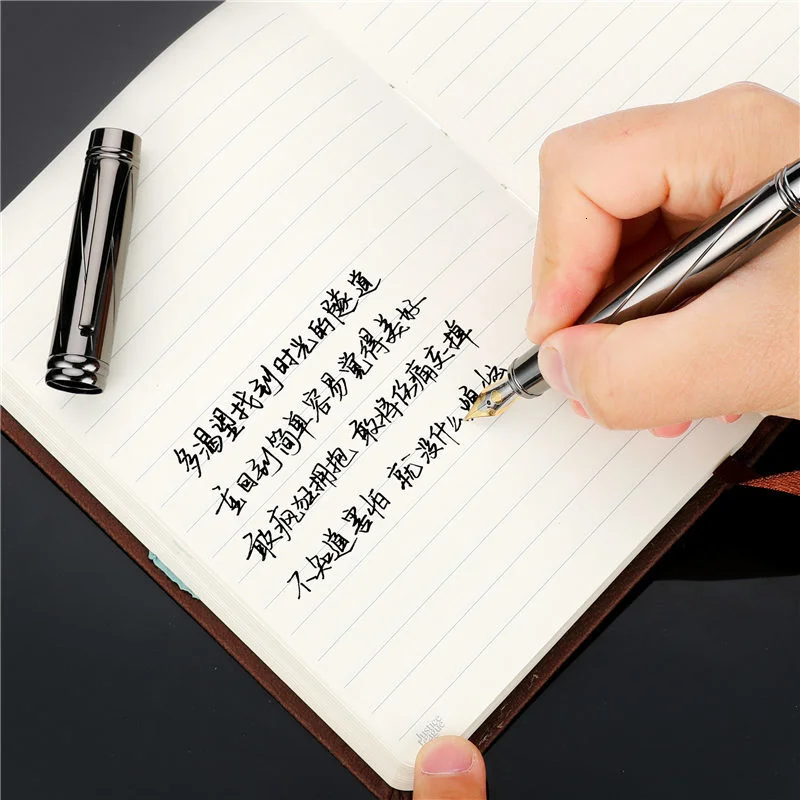 多渴望找到时光的隧道
重回到简单容易觉得美好
敢疯狂拥抱 敢将伤痛 掉
不知道害怕 就没什么烦恼
Justice
League